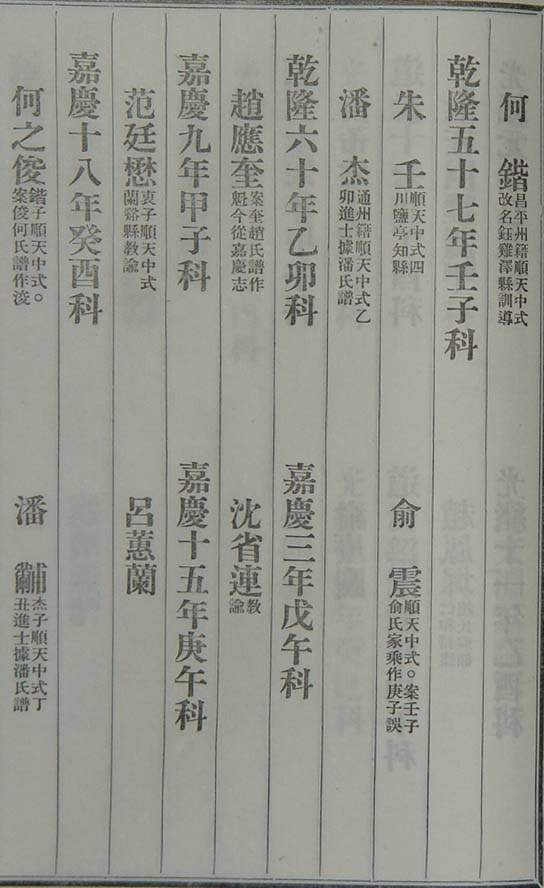 何鍇 昌平州籍順天中式改名鈺雞澤縣訓導
乾隆五十七年壬子科
朱壬 順天中式四川鹽亭知縣
俞震 順天中式。案壬子俞氏家乘作庚子誤
潘杰 通州籍順天中式乙卯進士據潘氏譜
乾隆六十年乙卯科
嘉慶三年戊午科
趙應奎 案奎趙氏譜作魁今從嘉慶志
沈省連 教諭
嘉慶九年甲子科
嘉慶十五年庚午科
范廷懋 衷子順天中式蘭谿縣教諭
呂蕙蘭
嘉慶十八年癸酉科
何之俊 鍇子順天中式。案俊何氏譜作浚
潘黼 杰子順天中式丁丑進士據潘氏譜